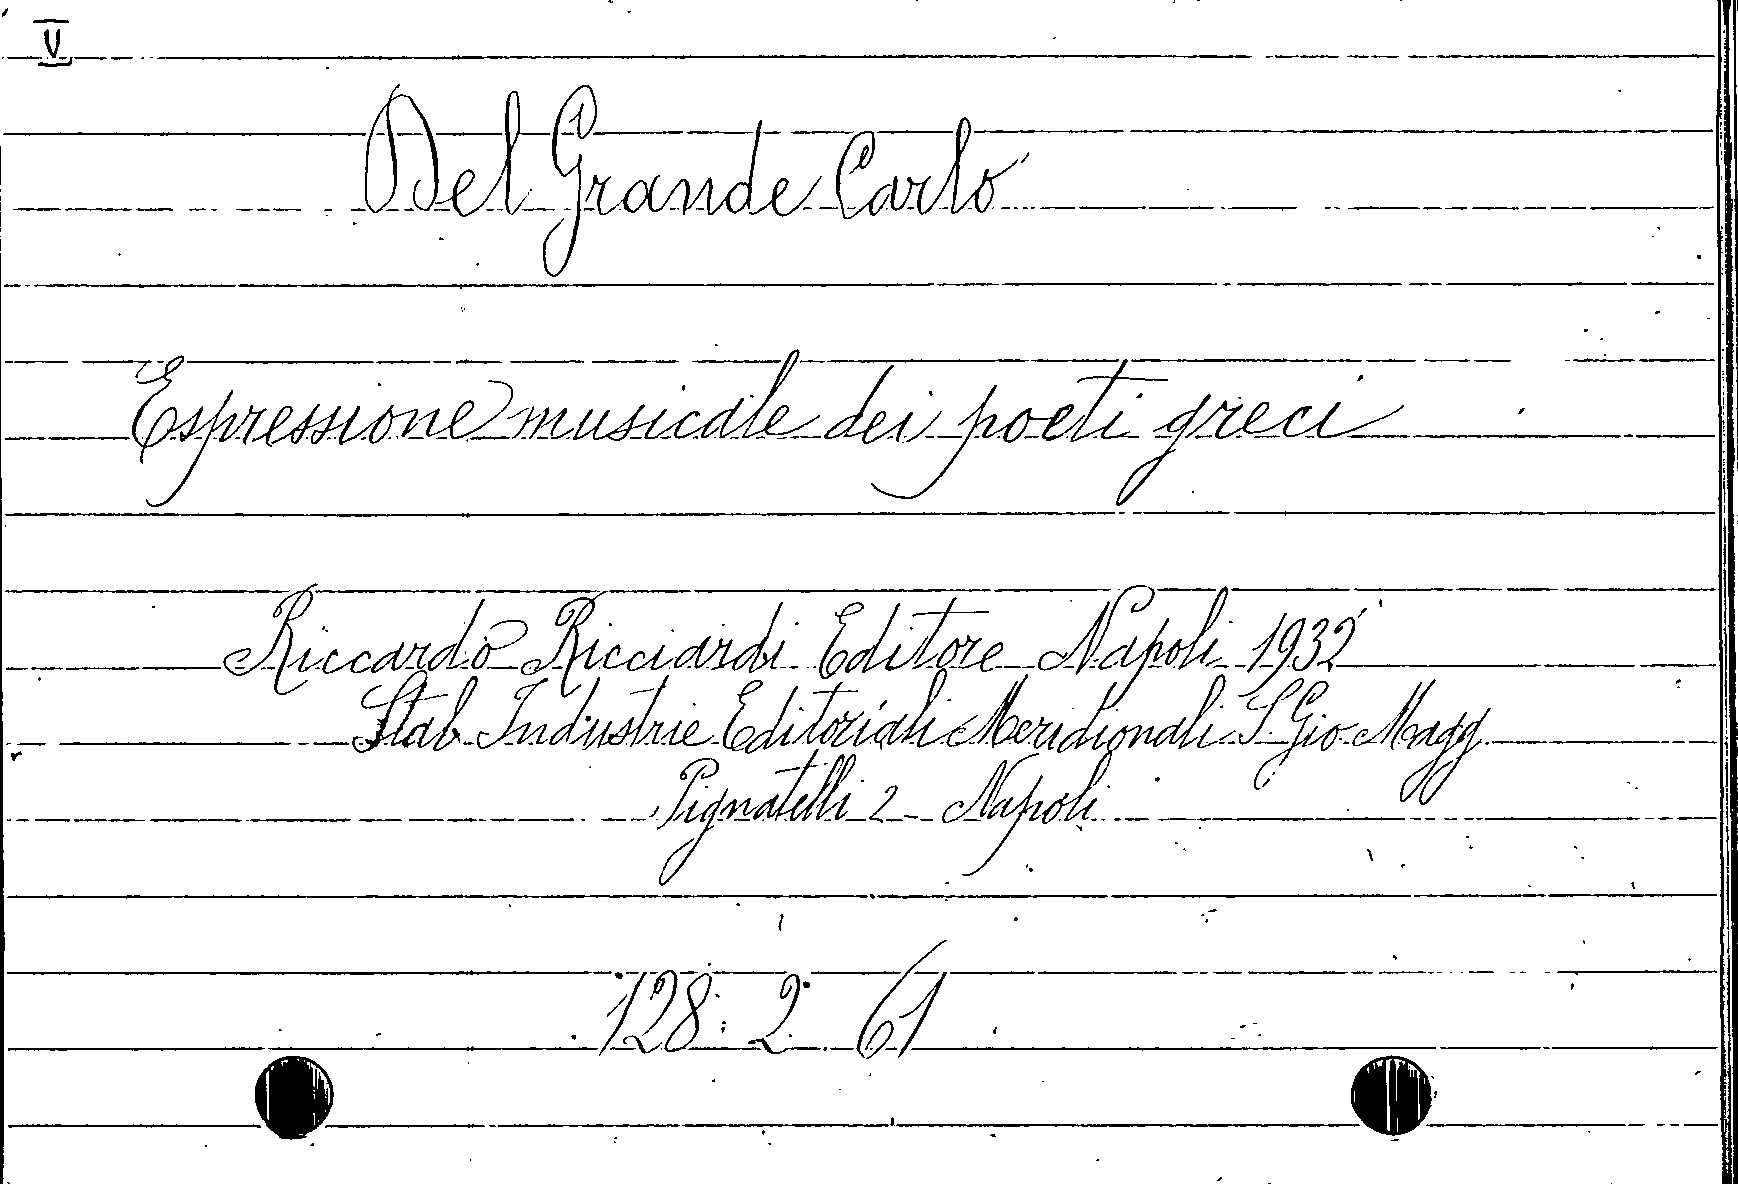 V
Del Grande Carlo
Espressione musicale dei poeti greci
Riccardo Ricciardi Editore Napoli 1932
Stab. Industrie Editoriali Meridionali S. Gio. Magg.
Pignatelli 2 - Napoli
128. 2. 61